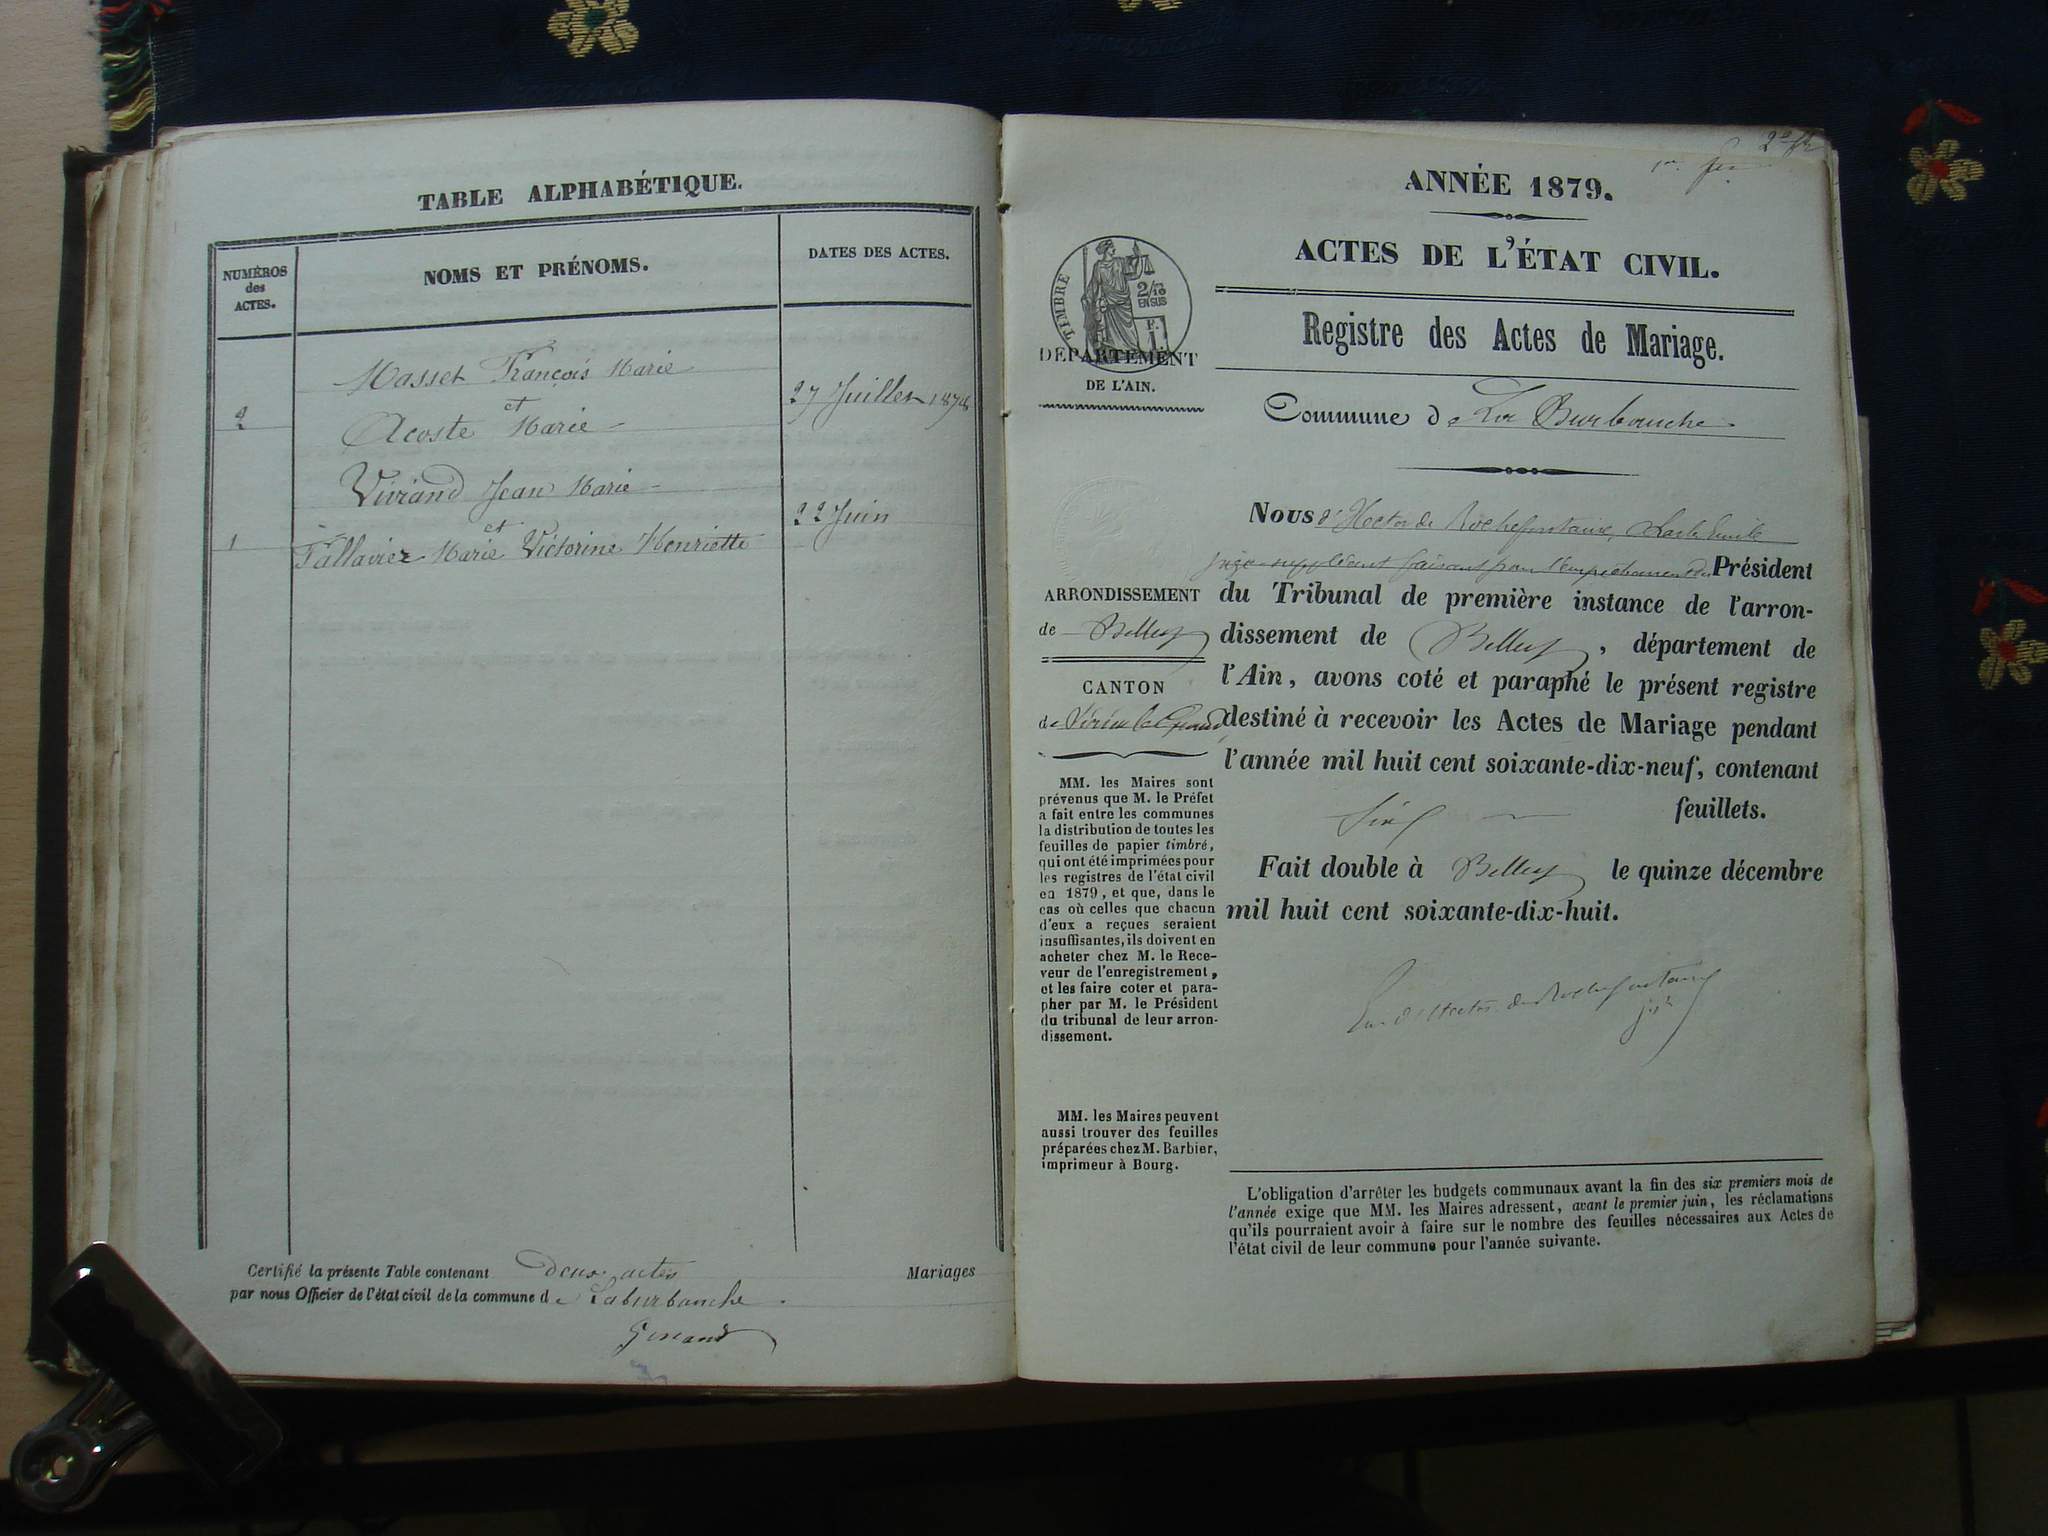 TABLE ALPHABÉTIQUE.
NUMÉROS
des
ACTES.
NOMS ET PRÉNOMS.
DATES DES ACTES.
Masset François Marie
2
et
27 Juillet 1878
Acoste Marie
Vivrand Jean Marie
22 Juin
1
et
Fallavier Marie Victorine Henriette
Certifié la présente Table contenant deux actes Mariages
par nous Officier de l'état civil de la commune de Laburbanche
2e f
1er
ANNÉE 1879.
ACTES DE L'ÉTAT CIVIL.
TIMBRE
2/10
EN SUS
F.
1.
Registre des Actes de Mariage.
DÉPARTEMENT
DE L'AIN.
Commune de La Burbanche
Nous d'Hector de Rochefontaine, Emile
juge suppléant faisant pour l'empêchement du Président
du Tribunal de première instance de l'arron-
dissement de Belley, département de
l'Ain, avons coté et paraphé le présent registre
destiné à recevoir les Actes de Mariage pendant
l'année mil huit cent soixante-dix-neuf, contenant
Six feuillets.
Fait double à Belley le quinze décembre
mil huit cent soixante-dix-huit.
Em. d'Hector de Rochefontaine
ARRONDISSEMENT
de Belley
CANTON
de Virieu le Grand
MM. les Maires sont
prévenus que M. le Préfet
a fait entre les communes
la distribution de toutes les
feuilles de papier timbré,
qui ont été imprimées pour
les registres de l'état civil
en 1879, et que, dans le
cas où celles que chacun
d'eux a reçues seraient
insuffisantes, ils doivent en
acheter chez M. le Rece-
veur de l'enregistrement,
et les faire coter et para-
pher par M. le Président
du tribunal de leur arron-
dissement.
MM. les Maires peuvent
aussi trouver des feuilles
préparées chez M. Barbier,
imprimeur à Bourg.
L'obligation d'arrêter les budgets communaux avant la fin des six premiers mois de
l'année exige que MM. les Maires adressent, avant le premier juin, les réclamations
qu'ils pourraient avoir à faire sur le nombre des feuilles nécessaires aux Actes de
l'état civil de leur commune pour l'année suivante.